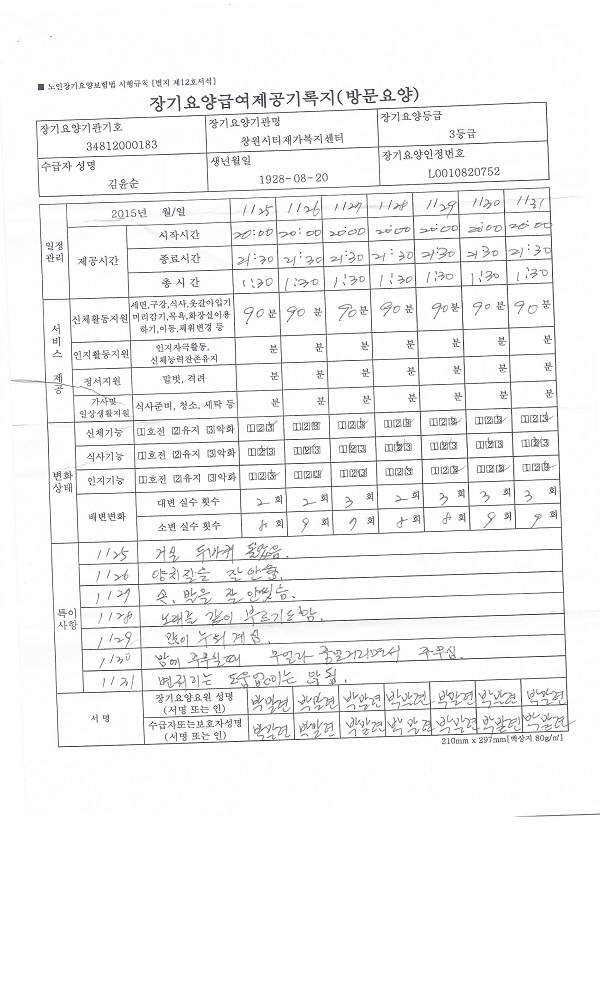 ■ 노인장기요양보험법 시행규칙 [별지 제12호서식]
장기요양급여제공기록지(방문요양)
장기요양기관기호 장기요양기관명 장기요양등급
34812000183 창원시티재가복지센터 3등급
수급자 성명 생년월일 장기요양인정번호
김윤순 1928-08-20 L0010820752
일정관리 2015년 월/일 1/25 1/26 1/27 1/28 1/29 1/30 1/31
제공시간 시작시간 20:00 20:00 20:00 20:00 20:00 20:00 20:00
종료시간 21:30 21:30 21:30 21:30 21:30 21:30 21:30
총 시 간 1:30 1:30 1:30 1:30 1:30 1:30 1:30
서비스 제공 신체활동지원 세면,구강,식사,옷갈아입기
머리감기,목욕,화장실이용
하기,이동,체위변경 등 90분 90분 90분 90분 90분 90분 90분
인지활동지원 인지자극활동,
신체능력잔존유지 분 분 분 분 분 분 분
정서지원 말벗, 격려 분 분 분 분 분 분 분
가사및
일상생활지원 식사준비, 청소, 세탁 등 분 분 분 분 분 분 분
변화상태 신체기능 1호전 2유지 3악화 123 123 123 123 123 123 123
식사기능 1호전 2유지 3악화 123 123 123 123 123 123 123
인지기능 1호전 2유지 3악화 123 123 123 123 123 123 123
배변변화 대변 실수 횟수 2회 2회 3회 2회 3회 3회 3회
소변 실수 횟수 8회 9회 7회 8회 8회 9회 9회
특이사항
1/25 거실 두바퀴 돌았음.
1/26 양치질을 잘 안함.
1/27 손, 발을 잘 안씻음.
1/28 노래를 같이 부르기도 함.
1/29 많이 누워 계심.
1/30 밤에 주무실때 무얼라 중얼거리면서 주무심.
1/31
서 명 장기요양요원 성명
(서명 또는 인) 박말련 박말련 박말련 박말련 박말련 박말련 박말련
수급자또는보호자성명
(서명 또는 인) 박말련 박말련 박말련 박말련 박말련 박말련 박말련
210mm x 297mm[백상지 80g/㎡]